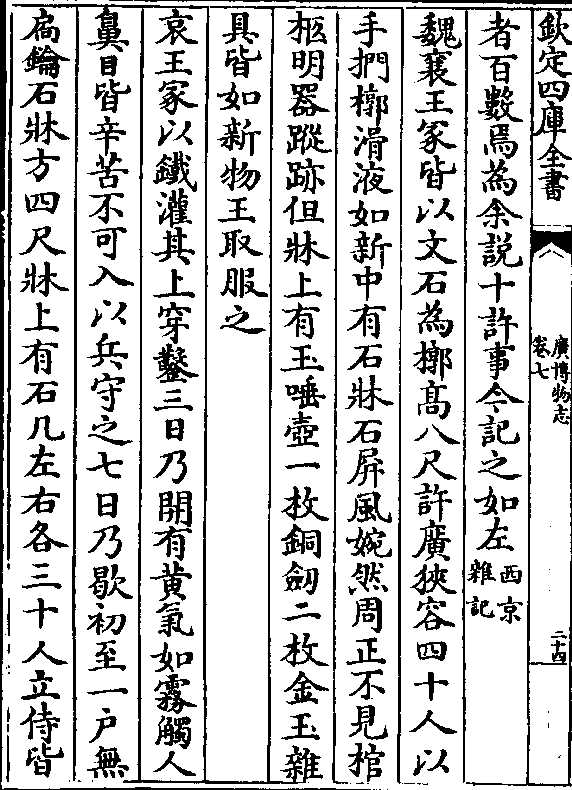 欽定四庫全書
廣博物志
卷七
二十四
者百數焉為余説十許事今記之如左西京雜記
魏襄王冢皆以文石為槨髙八尺許廣狹容四十人以
手捫槨滑液如新中有石牀石屏風婉然周正不見棺
柩明器蹤跡但牀上有玉唾壺一枚銅劒二枚金玉雜
具皆如新物王取服之
哀王冢以鐵灌其上穿鑿三日乃開有黄氣如霧觸人
鼻目皆辛苦不可入以兵守之七日乃歇初至一户無
扃鑰石牀方四尺牀上有石几左右各三十人立侍皆